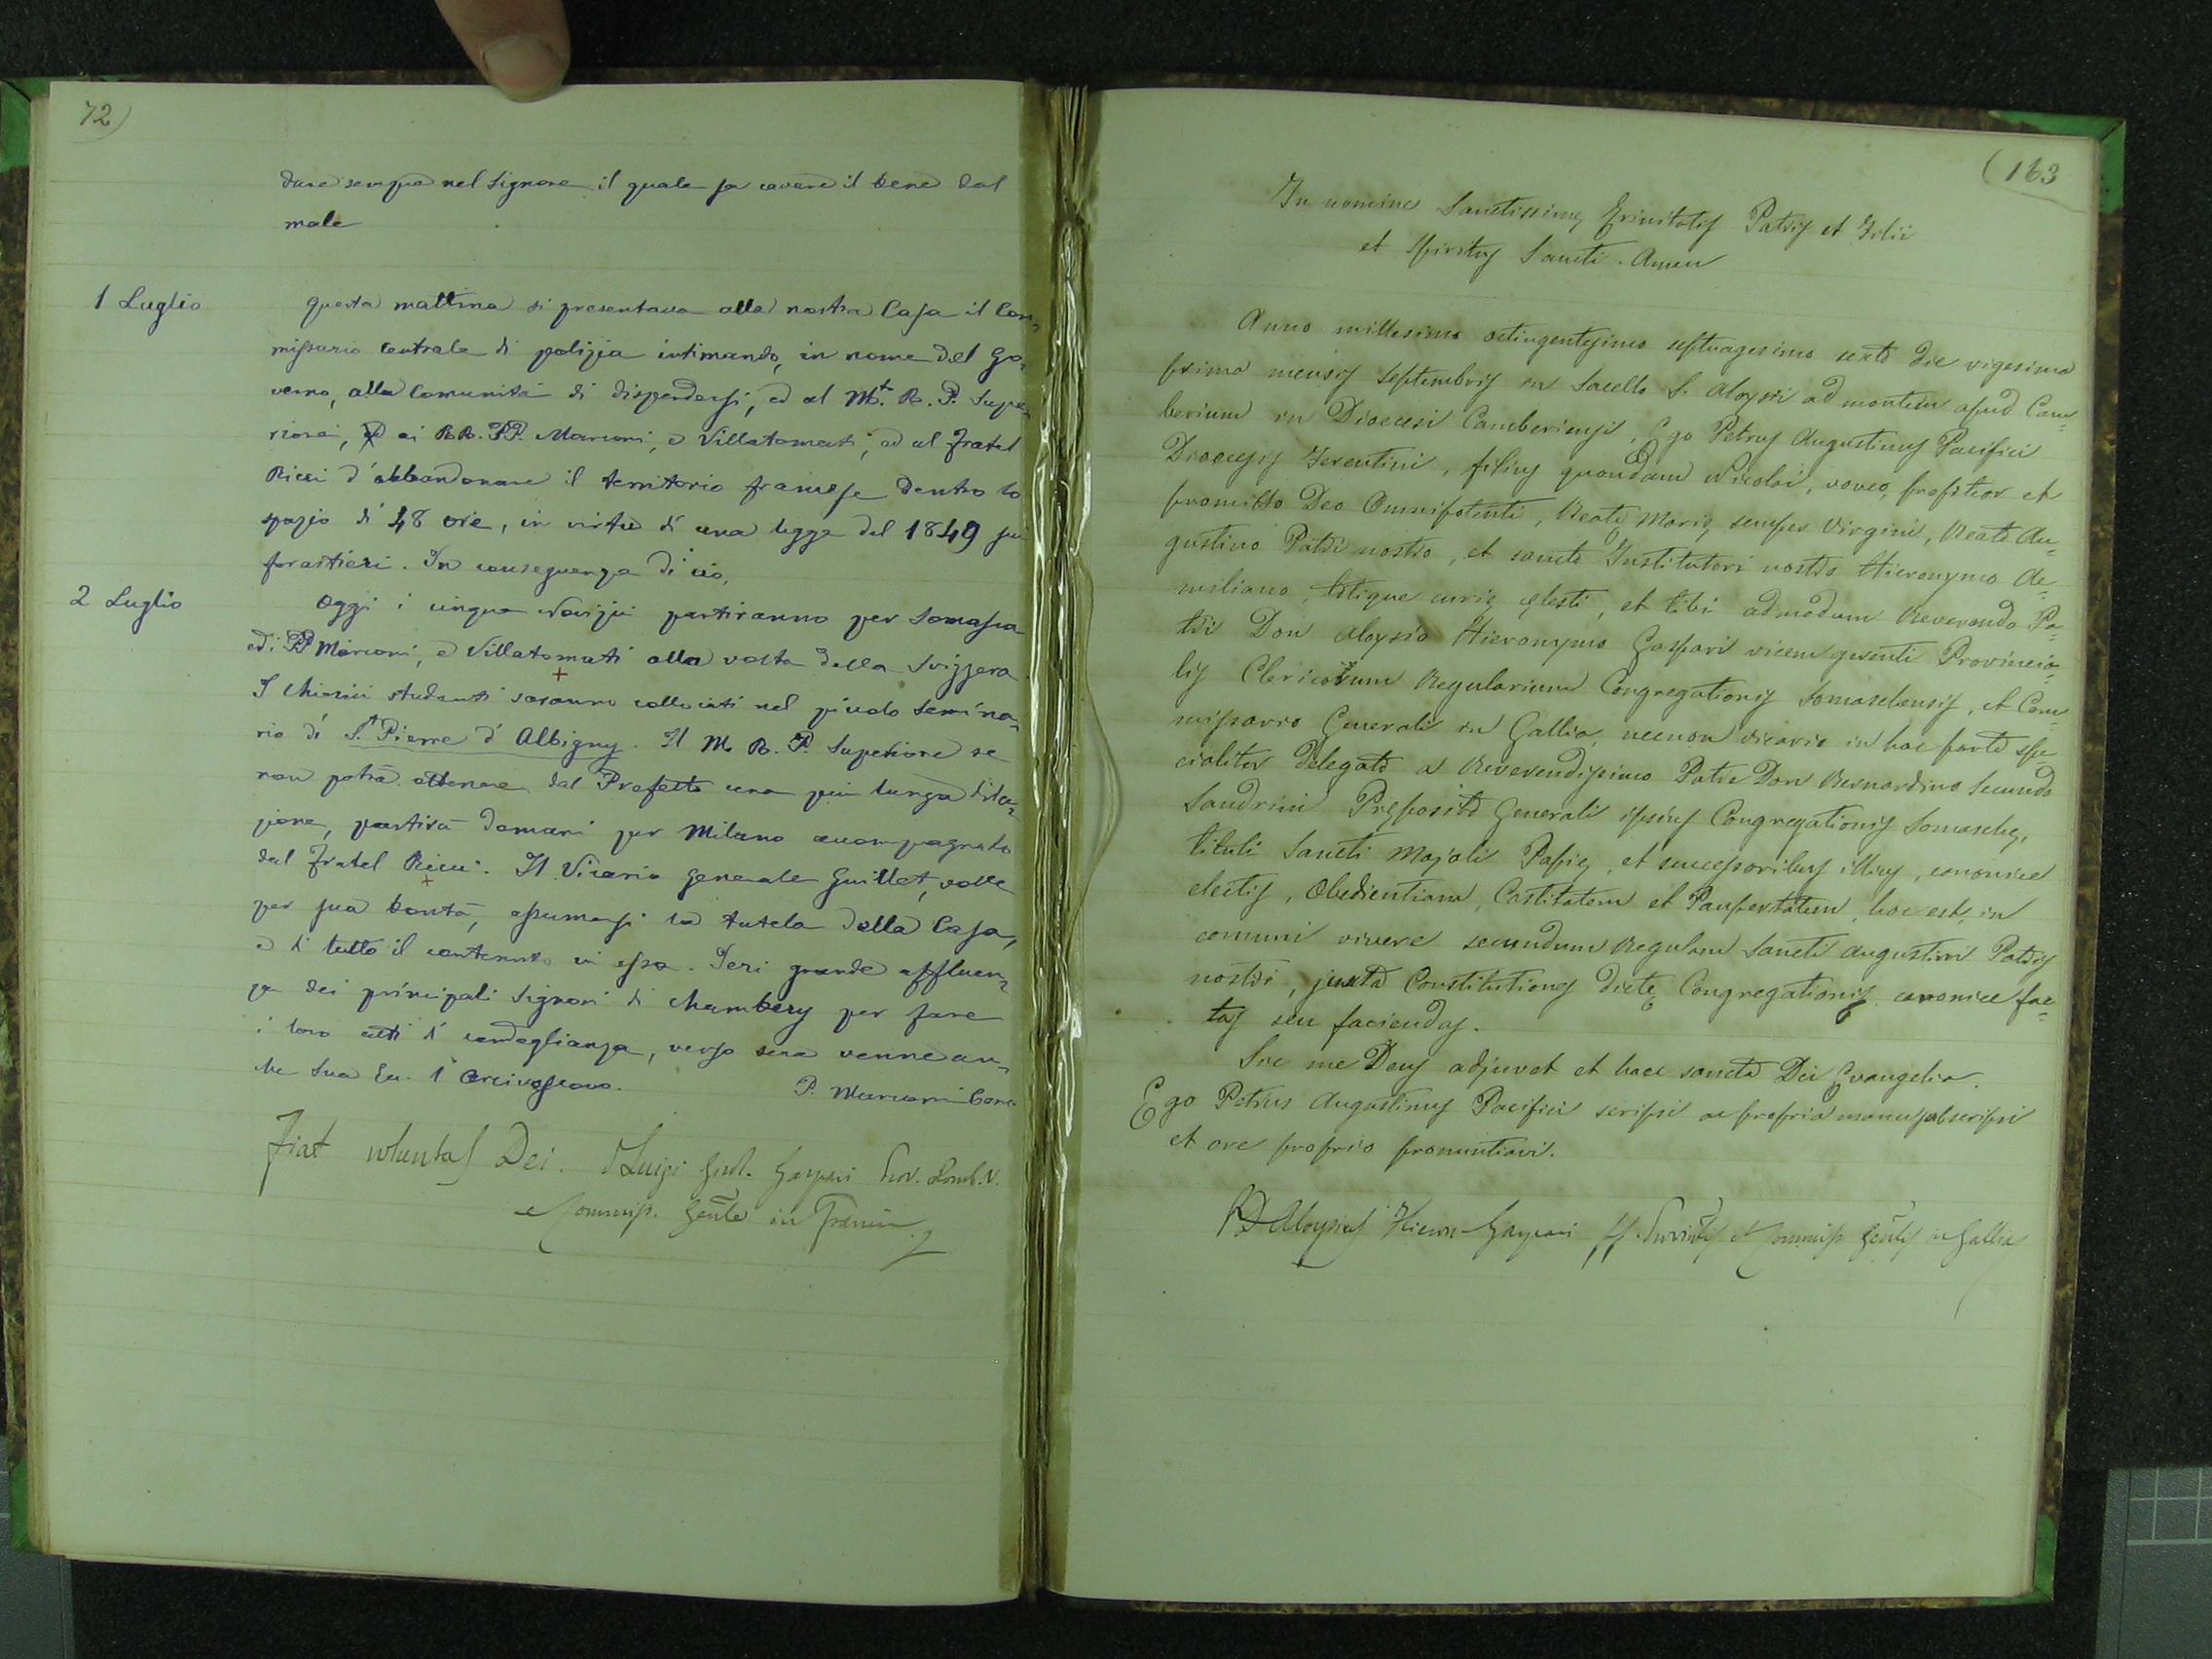 72)
dare sempre nel Signore il quale sa cavare il bene dal
male
1 Luglio
Questa mattina si presentava alla nostra Casa il Com=
missario Centrale di polizia intimando, in nome del Go=
verno, alla Comunità di disperdersi, ed al M.t R. P. Supe=
riore, ai RR. PP. Marconi, e Villatomati, ed al Fratel
Ricci d'abbandonare il territorio francese dentro lo
spazio di 48 ore, in virtù di una legge del 1849 sui
forastieri. In conseguenza di ciò,
2 Luglio
Oggi i cinque Novizii partiranno per Somasca
ed i PP Marconi, e Villatomati alla volta della Svizzera
I Chierici studenti saranno collocati nel piccolo Semina=
rio di S.t Pierre d'Albigny. Il M. R. P. Superiore se
non potrà ottenere dal Prefetto una più lunga dila=
zione, partirà domani per Milano accompagnato
dal Fratel Ricci. Il Vicario generale Guillet, volle
per sua bontà, assumersi la tutela della Casa,
e di tutto il contenuto in essa. Ieri grande affluen=
za dei principali Signori di Chambery per fare
i loro atti di condoglianza, verso sera venne an=
che Sua Ecc. l'Arcivescovo.
P. Marconi Canc.
Fiat voluntas Dei. D Luigi Girol. Gaspari Prov. Lomb. V.
e Commiss. Gen̄le in Francia
(163
In nomine Sanctissimę Trinitatis Patris et Filii
et Spiritus Sancti. Amen
Anno millesimo octingentesimo septuagesimo sexto die vigesima
prima mensis Septembris in Sacello S. Aloysii ad montem apud Cam=
berium in Dioecesi Camberiensi, Ego Petrus Augustinus Pacifici
Dioecesis Ferentini, filius quondam Nicolai, voveo, profiteor et
promitto Deo Omnipotenti, Beatę Marię semper Virgini, Beato Au=
gustino Patri nostro, et sancto Institutori nostro Hieronymo Ae=
miliano totique curię cęlesti, et tibi admodum Reverendo Pa=
tri Don Aloysio Hieronymo Gaspari vicem gerenti Provincia=
lis Clericorum Regularium Congregationis Somaschensis, et Com=
missario Generali in Gallia, necnon vicario in hac parte spe=
cialiter delegato a Reverendissimo Patre Don Bernardino Secundo
Sandrini Pręposito Generali ipsius Congregationis Somaschę,
tituli Sancti Majoli Papię, et successoribus illius, canonice
electis, Obedientiam, Castitatem et Paupertatem, hoc est, in
comuni vivere secundum Regulam Sancti Augustini Patris
nostri, juxta Constitutiones dictę Congregationis canonice fac=
tas seu faciendas.
Sic me Deus adjuvet et haec sancta Dei Evangelia.
Ego Petrus Augustinus Pacifici scripsi ac propria manu subscripsi
et ore proprio pronuntiavi.
D Aloysius Hieron. Gaspari Provin̄lis et Commiss. Gen̄lis in Gallia